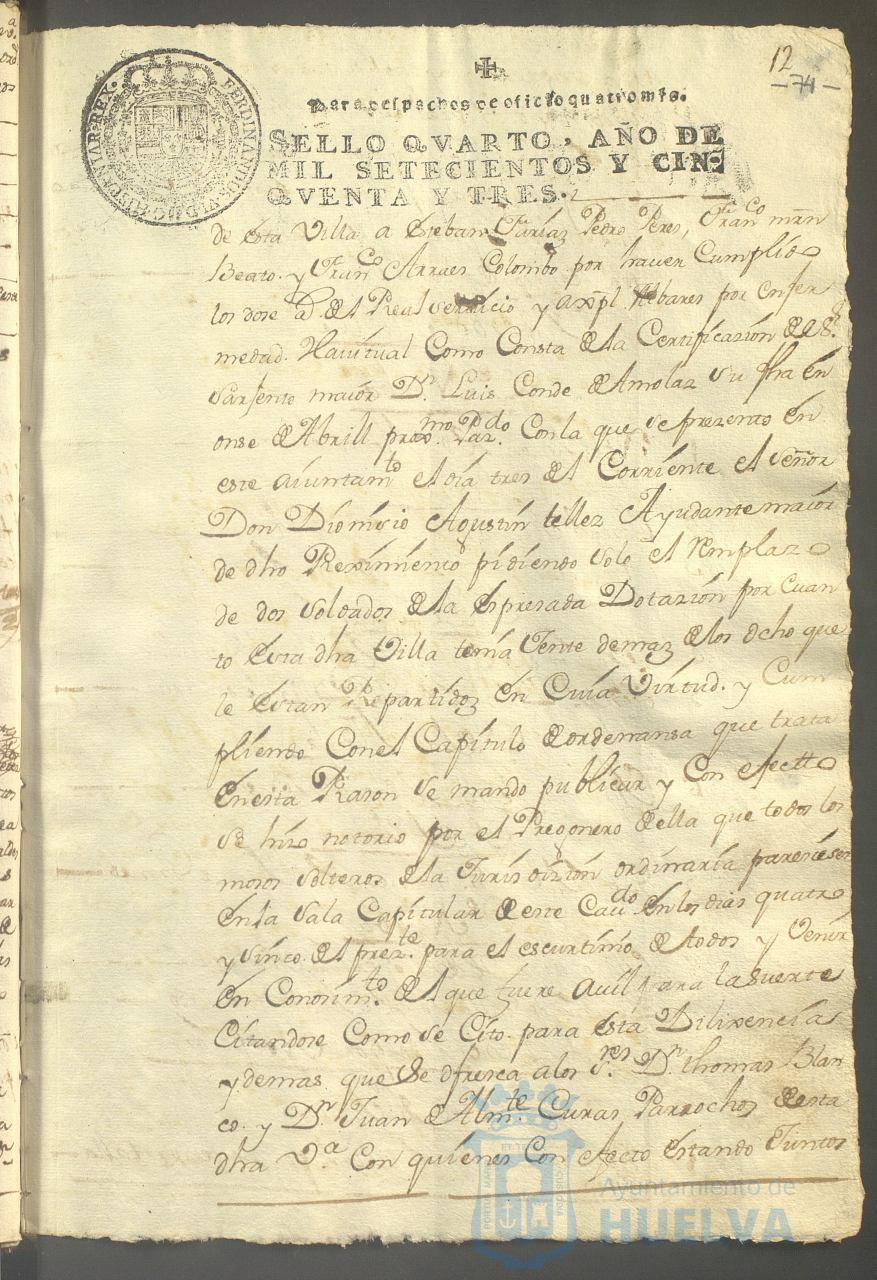 12
-74-
FERDINANDUS.VI.D.G.HISPANIAR.REX.
Para despachos de oficio quatro mrs.
SELLO QVARTO, AÑO DE
MIL SETECIENTOS Y CIN-
QVENTA Y TRES.
de esta Villa a Esteban Farías Pedro Peres, Franco mrn
Beato. y Franco Arraes Colombo por haver Cumplido
los dose as. del Real servicio y Albares por enfer
medad. Havitual Como Consta de la Certificazión del Sr.
Sarjento maior Dn. Luis Conde de Amolaz su fha en
onse de Abrill proxmo. Pazdo. Con la que se prezento en
este aiuntamto el día tres del Corriente el señor
Don Dionisio Agustín tellez Ayudante maior
de dho Reximiento pidiendo solo el remplazo
de dos soldados de la espresada Dotazión por Cuan
to esta dha Villa tenía Jente demaz de los ocho que
le estan Repartidoz en Cuía Virtud. y Cum
pliendo Con el Capítulo de ordenansa que trata
en esta Rason se mando publicar y Con efectto
se hizo notorio por el Pregonero della que todos los
mosos solteros de la Jurisdizión ordinaría pareciesen
en la sala Capitular de este Cavdo en los dias quatro
y sinco del prezte. para el escurtinio de todos y Venir
en Conosimto. del que fuere avil para la suerte
Citandose Como se Cito para esta Dilixencía
y demas que se ofresca a los Sres. Dn. thomas Blan
co. y Dn Juan de Almte Curas Parrochos de esta
dha Va. Con quienes Con efecto estando Juntos
Ayuntamiento de
HUELVA